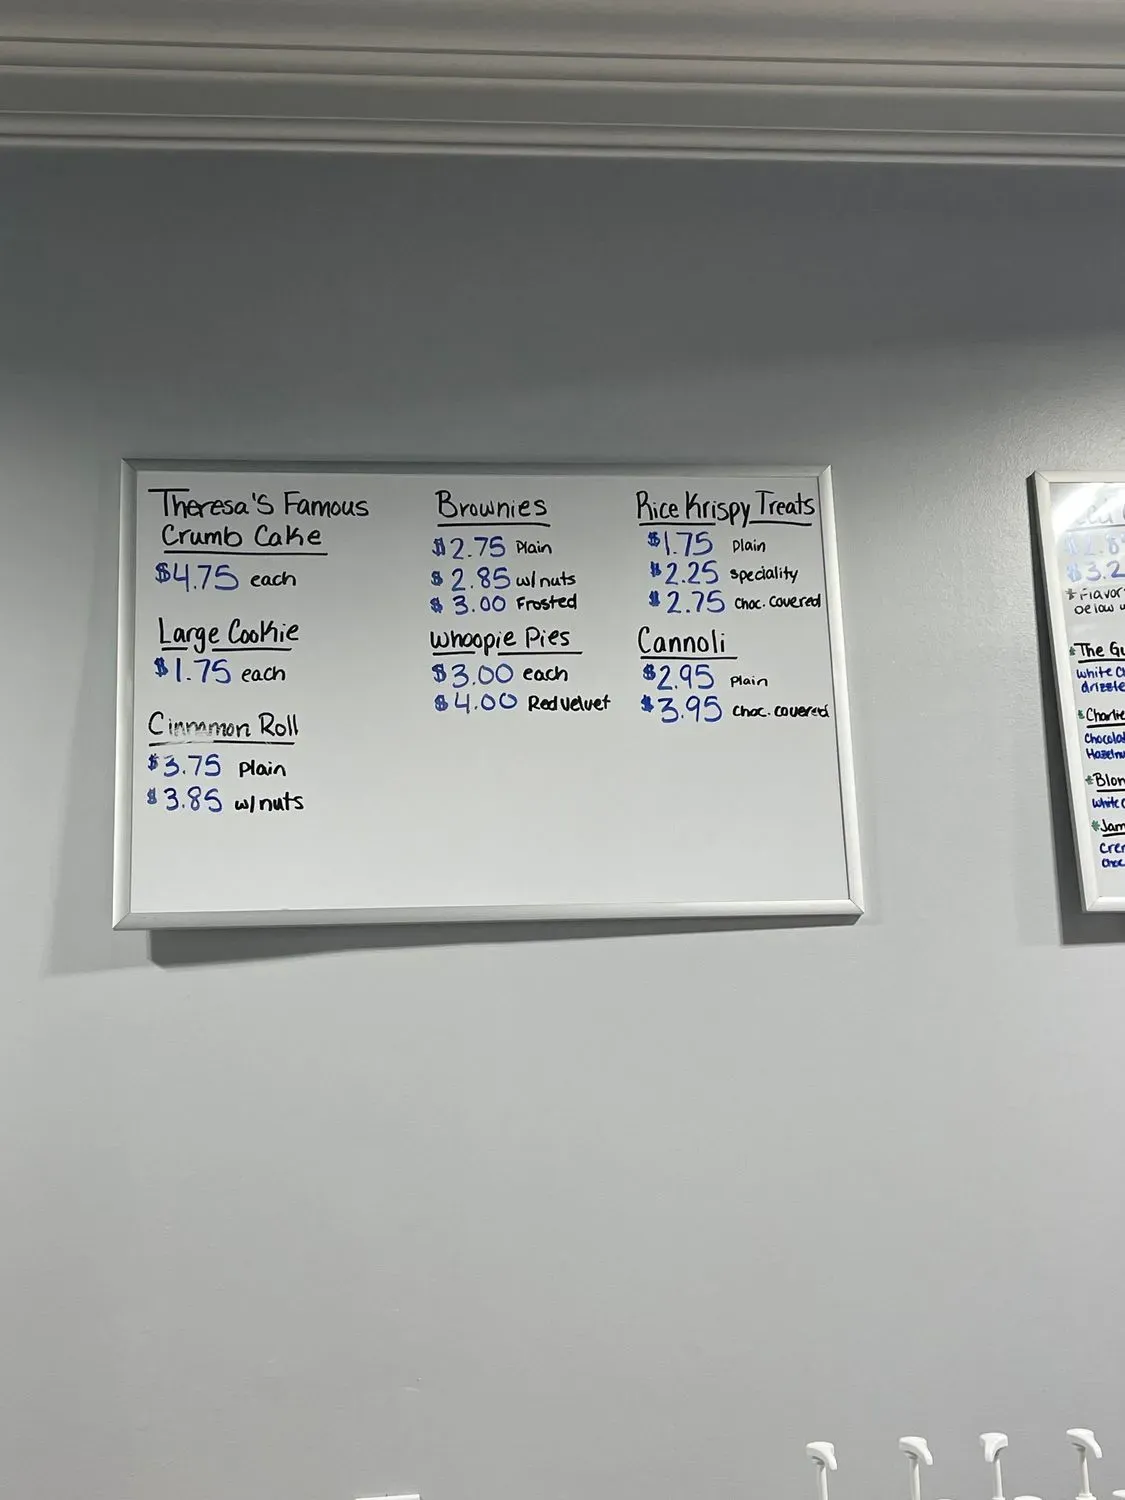 Theresa's Famous
Crumb Cake
$4.75 each
Large Cookie
$1.75 each
Cinnamon Roll
$3.75 Plain
$3.85 w/nuts
Brownies
$2.75 Plain
$2.85 w/nuts
$3.00 Frosted
Whoopie Pies
$3.00 each
$4.00 Red Velvet
Rice Krispy Treats
$1.75 Plain
$2.25 speciality
$2.75 Choc. Covered
Cannoli
$2.95 Plain
$3.95 Choc. covered
*Flavor
below
*The
White
drizzle
*Charlie
*
White
*